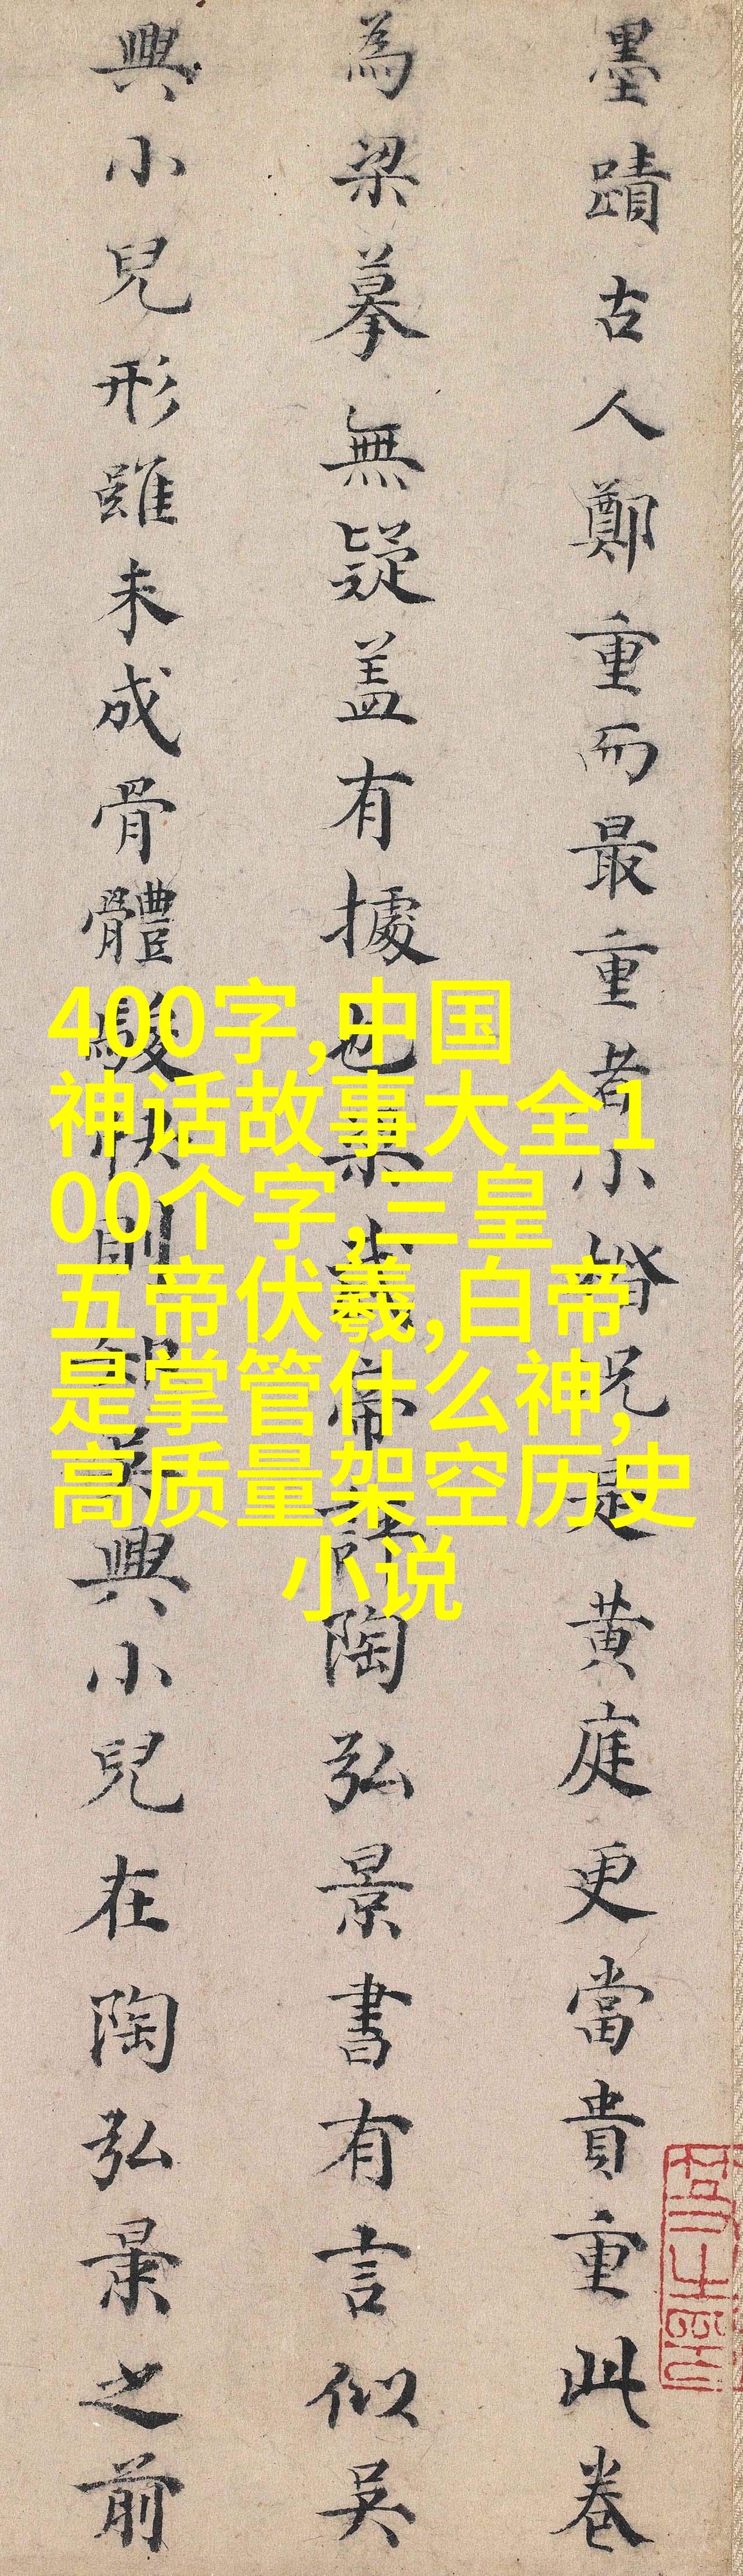 墨蹟古人鄭重而最重者小楷況是黄庭更當貴重此卷
為梁摹無疑盖有據也梁武帝評陶弘景書有言似吳
興小兒形雖未成骨體駿快則知吳興小兒在陶弘景之前
400字,中国
神话故事大全1
00个字,三皇
五帝伏羲,白帝
是掌管什么神,
高质量架空历史
小说